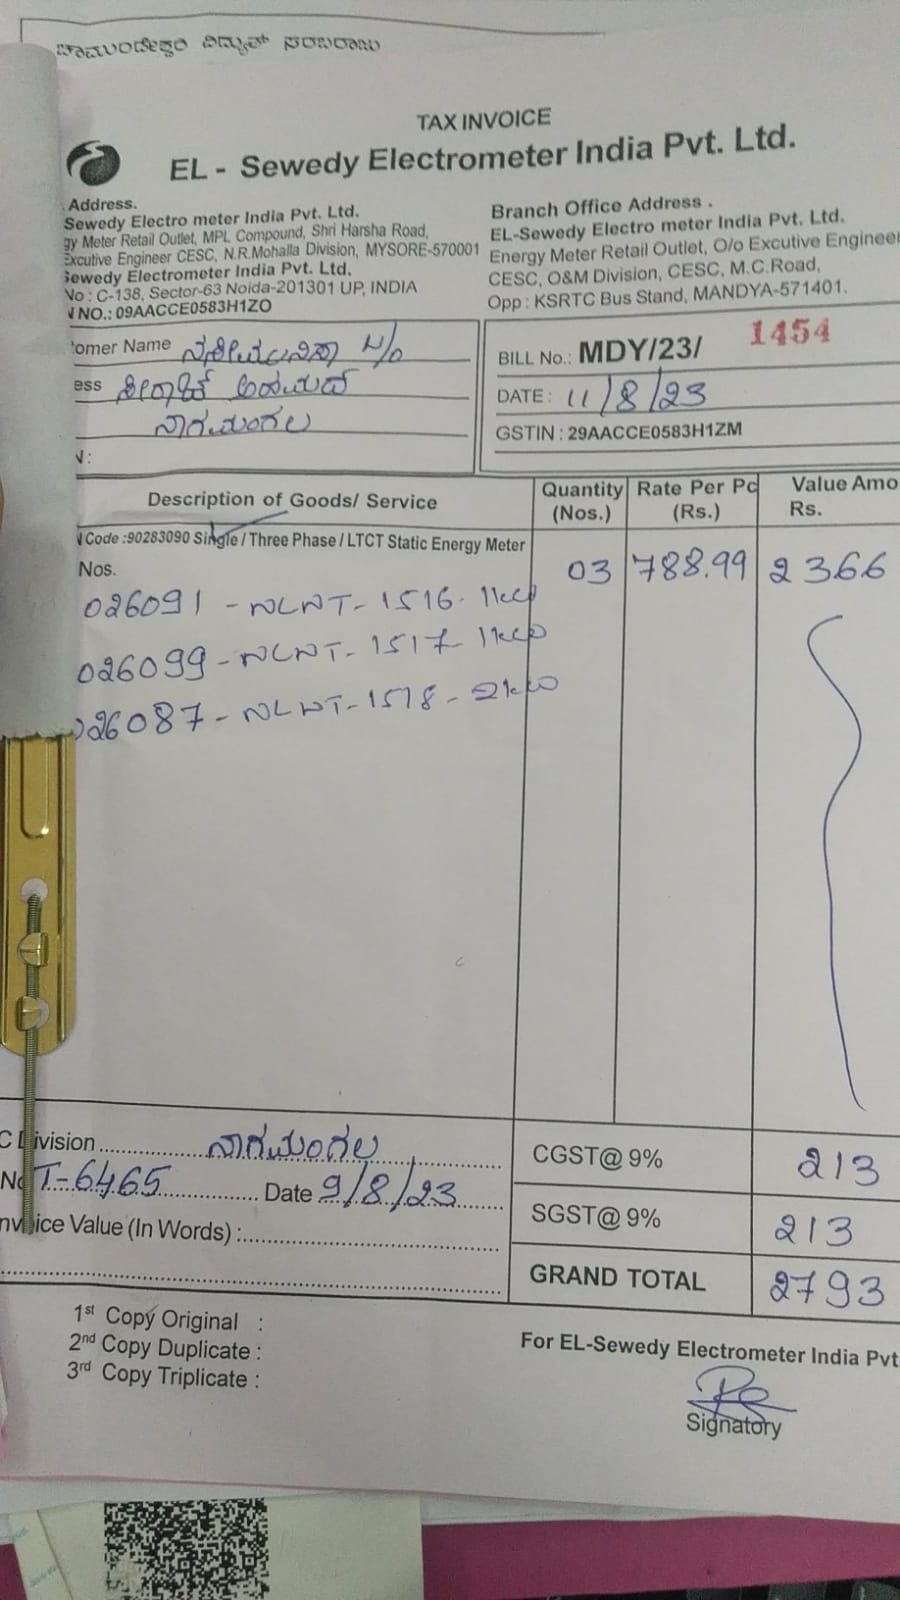 ಚಾಮುಂಡೇಶ್ವರಿ ವಿದ್ಯುತ್ ಸರಬರಾಜು
TAX INVOICE
EL - Sewedy Electrometer India Pvt. Ltd.
Address.
Sewedy Electro meter India Pvt. Ltd.
gy Meter Retail Outlet, MPL Compound, Shri Harsha Road,
Excutive Engineer CESC, N.R.Mohalla Division, MYSORE-570001
Sewedy Electrometer India Pvt. Ltd.
No : C-138, Sector-63 Noida-201301 UP, INDIA
N NO.: 09AACCE0583H1ZO
Branch Office Address .
EL-Sewedy Electro meter India Pvt. Ltd.
Energy Meter Retail Outlet, O/o Excutive Engineer
CESC, O&M Division, CESC, M.C.Road,
Opp : KSRTC Bus Stand, MANDYA-571401.
omer Name
ess
ನಾಗಮಂಗಲ
N :
BILL No.: MDY/23/ 1454
DATE : 11/8/23
GSTIN : 29AACCE0583H1ZM
Description of Goods/ Service Quantity (Nos.) Rate Per Pc (Rs.) Value Amo Rs.
Code :90283090 Single / Three Phase / LTCT Static Energy Meter
Nos. 03 788.99 2366
026091 - NLNT - 1516 - 1kw
026099 - NLNT - 1517 1kw
026087 - NLNT - 1518 - 2kw
C Division ನಾಗಮಂಗಲ CGST@ 9% 213
No T-6465 Date 9/8/23 SGST@ 9% 213
nvoice Value (In Words) :
GRAND TOTAL 2793
1st Copy Original :
2nd Copy Duplicate :
3rd Copy Triplicate :
For EL-Sewedy Electrometer India Pvt
Signatory